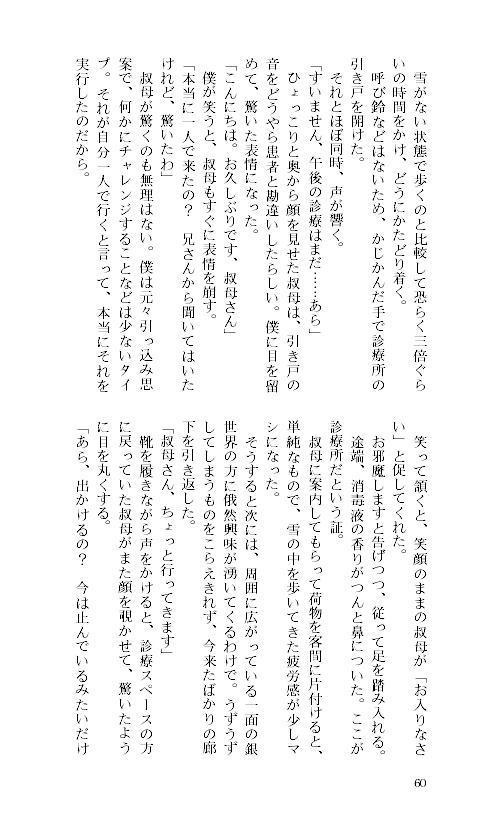 雪がない状態で歩くのと比較して恐らく三倍ぐら
いの時間をかけ、どうにかたどり着く。
　呼び鈴などはないため、かじかんだ手で診療所の
引き戸を開けた。
　それとほぼ同時、声が響く。
「すいません、午後の診療はまだ……あら」
　ひょっこりと奥から顔を見せた叔母は、引き戸の
音をどうやら患者と勘違いしたらしい。僕に目を留
めて、驚いた表情になった。
「こんにちは。お久しぶりです、叔母さん」
　僕が笑うと、叔母もすぐに表情を崩す。
「本当に一人で来たの？　兄さんから聞いてはいた
けれど、驚いたわ」
　叔母が驚くのも無理はない。僕は元々引っ込み思
案で、何かにチャレンジすることなどは少ないタイ
プ。それが自分一人で行くと言って、本当にそれを
実行したのだから。
　笑って頷くと、笑顔のままの叔母が「お入りなさ
い」と促してくれた。
　お邪魔しますと告げつつ、従って足を踏み入れる。
　途端、消毒液の香りがつんと鼻についた。ここが
診療所だという証。
　叔母に案内してもらって荷物を客間に片付けると、
単純なもので、雪の中を歩いてきた疲労感が少しマ
シになった。
　そうすると次には、周囲に広がっている一面の銀
世界の方に俄然興味が湧いてくるわけで。うずうず
してしまうものをこらえきれず、今来たばかりの廊
下を引き返した。
「叔母さん、ちょっと行ってきます」
　靴を履きながら声をかけると、診療スペースの方
に戻っていた叔母がまた顔を覗かせて、驚いたよう
に目を丸くする。
「あら、出かけるの？　今は止んでいるみたいだけ
60